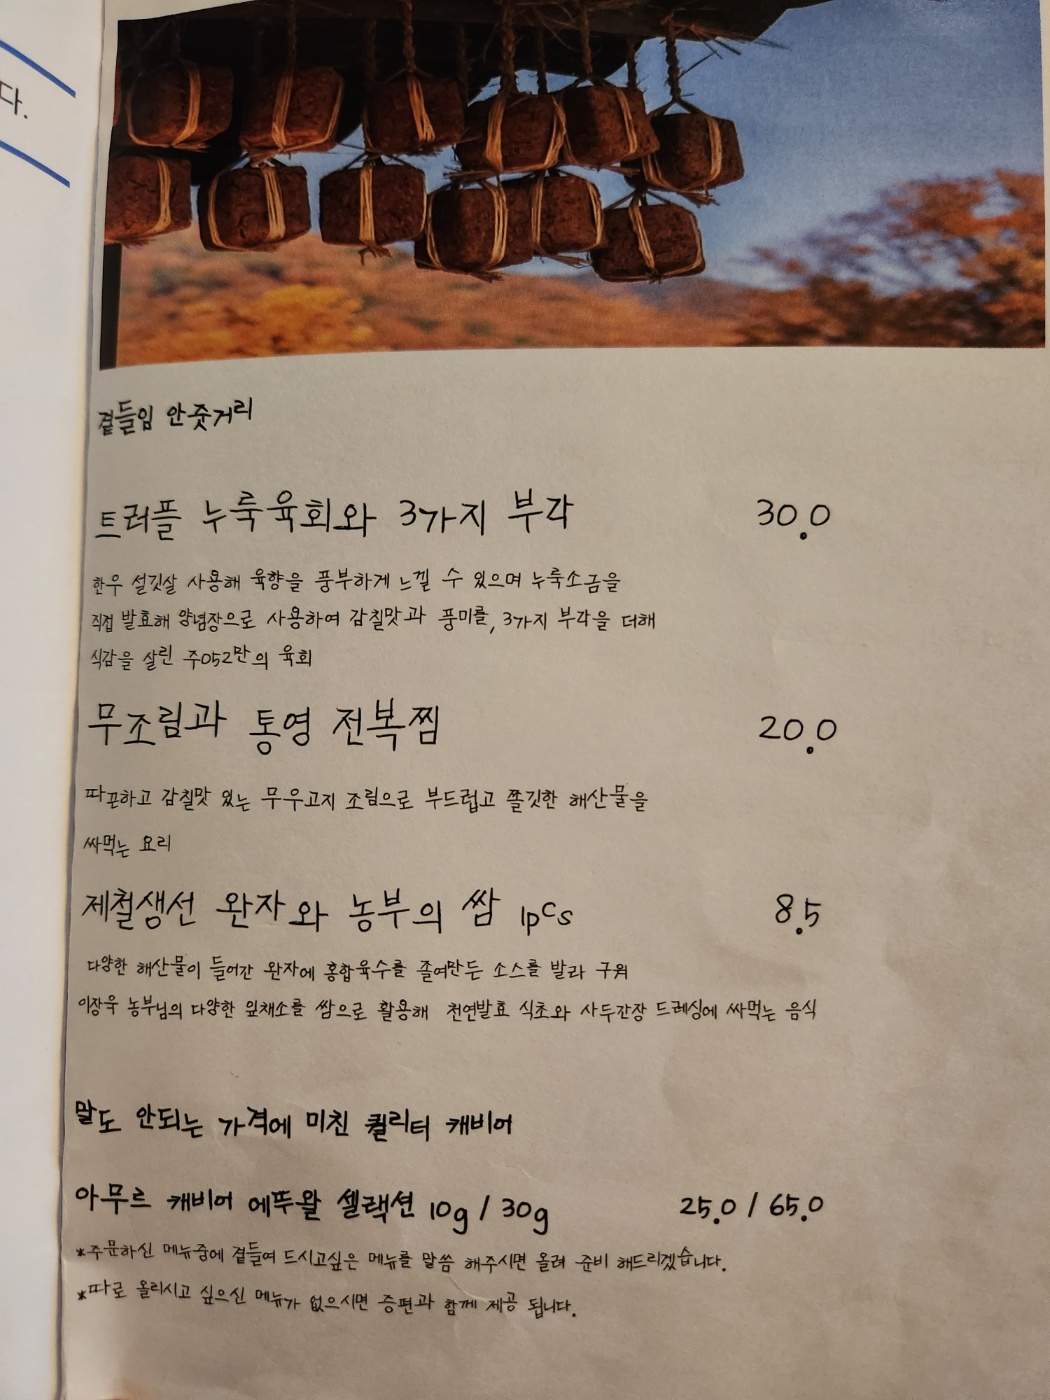 다.
곁들임 안줏거리
트러플 누룩육회와 3가지 부각 30.0
한우 설깃살 사용해 육향을 풍부하게 느낄 수 있으며 누룩소금을
직접 발효해 양념장으로 사용하여 감칠맛과 풍미를, 3가지 부각을 더해
식감을 살린 주052만의 육회
무조림과 통영 전복찜 20.0
따끈하고 감칠맛 있는 무우고지 조림으로 부드럽고 쫄깃한 해산물을
싸먹는 요리
제철생선 완자와 농부의 쌈 1pcs 8.5
다양한 해산물이 들어간 완자에 홍합육수를 졸여만든 소스를 발라 구워
이장욱 농부님의 다양한 잎채소를 쌈으로 활용해 천연발효 식초와 사두간장 드레싱에 싸먹는 음식
말도 안되는 가격에 미친 퀄리티 캐비어
아무르 캐비어 에뚜왈 셀랙션 10g / 30g 25.0 / 65.0
*주문하신 메뉴중에 곁들여 드시고싶은 메뉴를 말씀 해주시면 올려 준비 해드리겠습니다.
*따로 올리시고 싶으신 메뉴가 없으시면 증편과 함께 제공 됩니다.